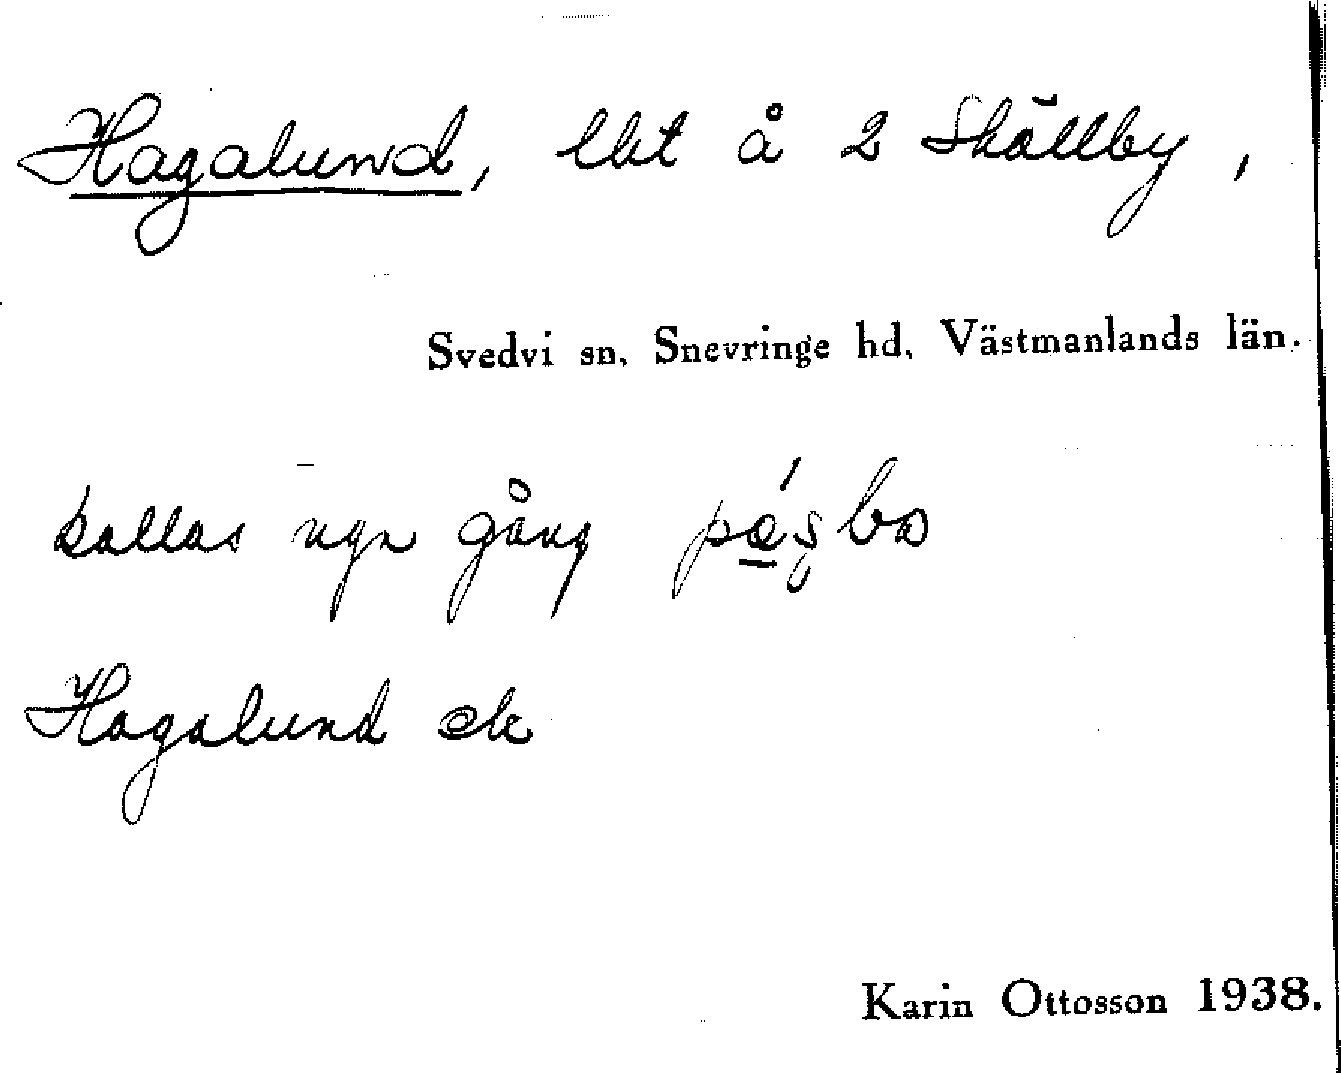 Hagalund, lht å 2 Skällby,
Svedvi sn. Snevringe hd. Västmanlands län.
kallas ngn gång
Hagalund ek
Karin Ottosson 1938.